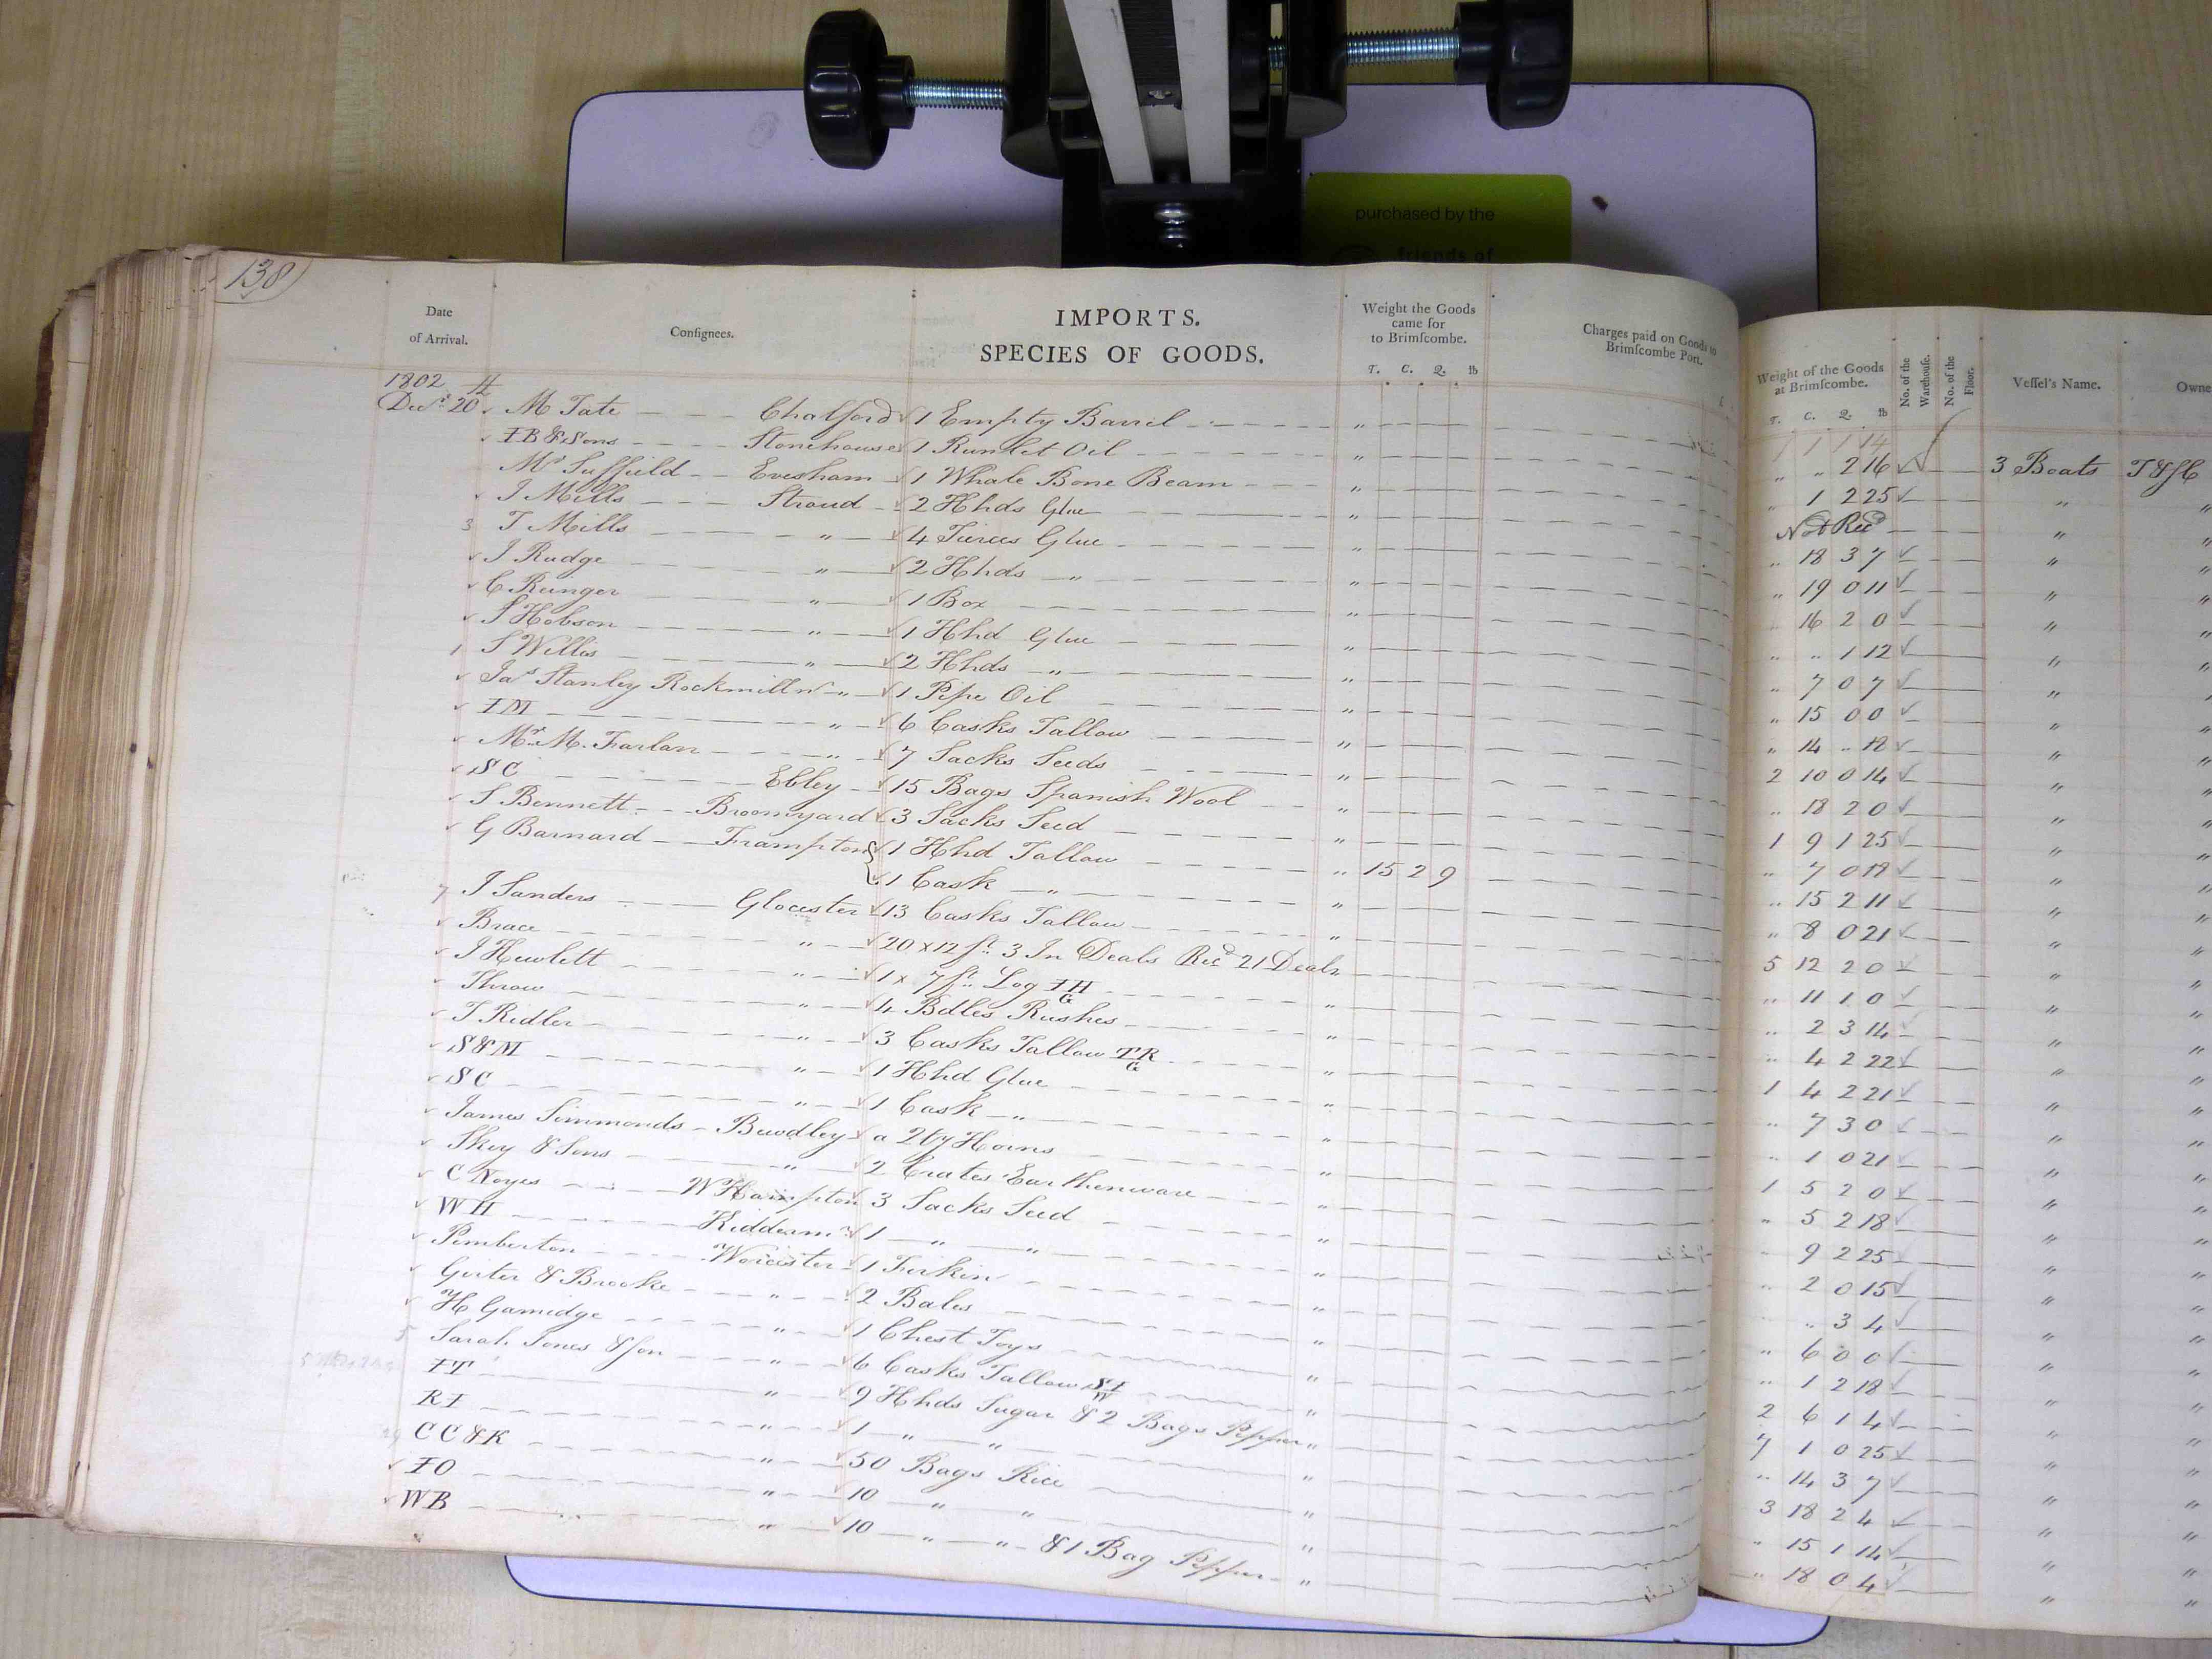 purchased by the
friends of
138
Date
of Arrival.
Consignees.
IMPORTS.
SPECIES OF GOODS.
Weight the Goods
came for
to Brimscombe.
T. C. Q. lb
Charges paid on Goods to
Brimscombe Port.
Weight of the Goods
at Brimscombe.
T. C. Q. lb
No. of the
Warehouse.
No. of the
Floor.
Vessel's Name.
Owne
1802
1 1 1 14
Decr. 20 M Tate Chalford 1 Empty Barrel " " .. 2 16 3 Boats T & J C
IB & Sons Stonehouse 1 Runlet Oil " " 1 2 25 " "
Mr Suffield Evesham 1 Whale Bone Beam " Not Recd " "
J Mills Stroud 2 Hhds Glue " " 18 3 7 " "
3 T Mills " 4 Tierces Glue " " 19 0 11 " "
J Rudge " 2 Hhds " " " 16 2 0 " "
C Runger " 1 Box " " .. 1 12 " "
S Hobson " 1 Hhd Glue " " 7 0 7 " "
1 S Willis " 2 Hhds " " " 15 0 0 " "
Jas Stanley Rockmill " 1 Pipe Oil " " 14 .. 18 " "
IM " 6 Casks Tallow " 2 10 0 14 " "
Mr M. Farlan " 7 Sacks Seeds " " 18 2 0 " "
SC Ebley 15 Bags Spanish Wool " 1 9 1 25 " "
S Bennett Broomyard 3 Sacks Seed " " 7 0 18 " "
G Barnard Frampton 1 Hhd Tallow " 15 2 11 " "
1 Cask " " 15 2 9 " 8 0 21 " "
7 J Sanders Glocester 13 Casks Tallow " 5 12 2 0 " "
Brace " 20 x 12 ft. 3 In Deals Recd 21 Deals " 11 1 0 " "
J Hewlett " 1 x 7 ft. Log IH G " " 2 3 14 " "
Throw " 4 Bdles Rushes " " 4 2 22 " "
T Ridler " 3 Casks Tallow TR G " 1 4 2 21 " "
S&M " 1 Hhd Glue " " 7 3 0 " "
SC " 1 Cask " " " 1 0 21 " "
James Simmonds Bewdley a Qty Horns " 1 5 2 0 " "
Skey & Sons " 2 Crates Earthenware " " 5 2 18 " "
C Noyes WHampton 3 Sacks Seed " " 9 2 25 " "
WH Kidderm 1 " " " " 2 0 15 " "
Pemberton Worcester 1 Firkin " " .. 3 4 " "
Guter & Brooke " 2 Bales " " 6 0 0 " "
H Gamidge " 1 Chest Toys " " 1 2 18 " "
5 Sarah Jones & Son " 6 Casks Tallow SI W " 2 6 1 4 " "
IT " 9 Hhds Sugar & 2 Bags Pepper " 7 1 0 25 " "
RI " 1 " " " " 14 3 7 " "
CC&K " 50 Bags Rice " 3 18 2 4 " "
IO " 10 " " " " 15 1 14 " "
WB " 10 " " & 1 Bag Pepper " " 18 0 4 " "